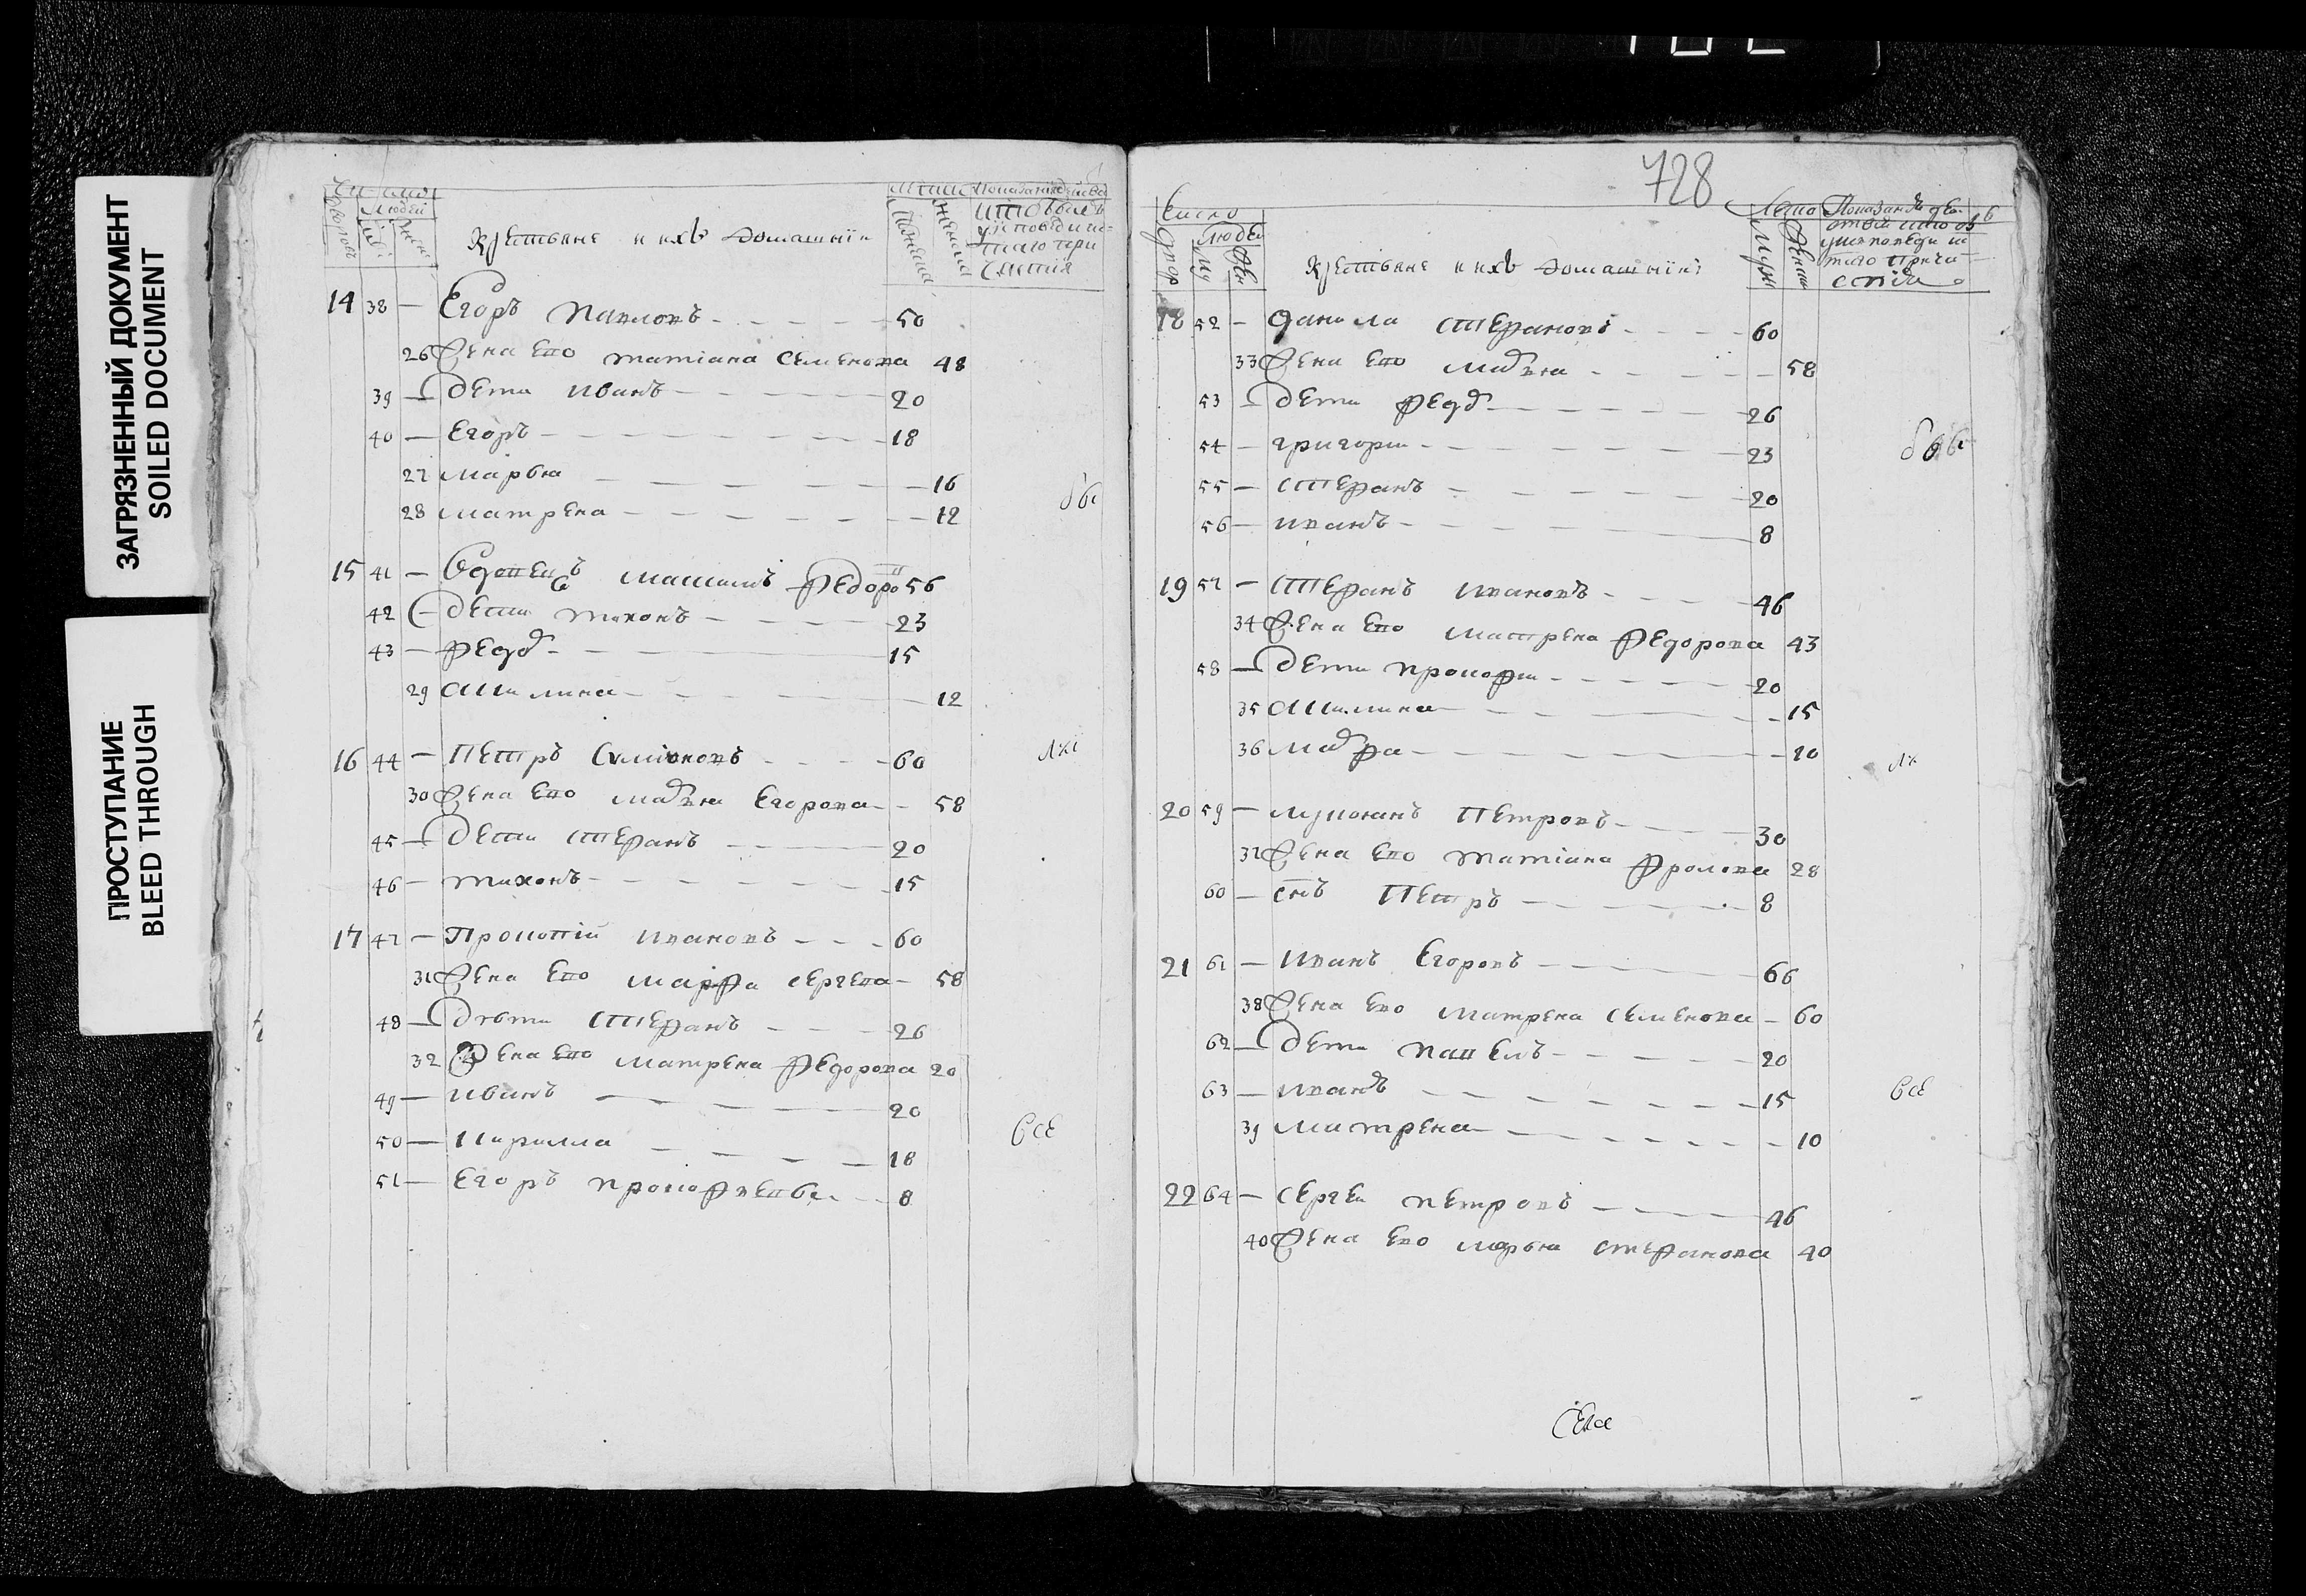 ЗАГРЯЗНЕННЫЙ ДОКУМЕНТ
SOILED DOCUMENT
ПРОСТУПАНИЕ
BLEED THROUGH
Число
дворовъ
Людей
Крестьяне и ихъ домашнїи
Лѣта
мужеска
женска
14 38 — Егоръ Павловъ 50
26 Жена ево татїана Семенова 48
39 — Дети иванъ 20
40 — Егоръ 18
27 марвна 16
28 матрена 12
15 41 — Вдовецъ Максимъ Федоро 56
42 — Дети тихонъ 23
43 — Федо 15
29 Акилина 12
16 44 — Петръ Симїоновъ 60
30 Жена ево мавра Егорова 58
45 — Дети Стефанъ 20
46 — тихонъ 15
17 47 — Прокопїй ивановъ 60
31 Жена ево марфа сергева 58
48 — Дѣти Стефанъ 26
32 Жена ево матрена Федорова 20
49 — иванъ 20
50 — Кирилла 18
все
51 — Егоръ 8
728
Число
двор
людей
муж
жен
Крестьяне и ихъ домашнїи
Лѣта
муж
жен
18 52 — Данила Стефановъ 60
33 Жена ево 58
53 — Дети Федо 26
54 — григори 23
55 — Стефанъ 20
56 — иванъ 8
19 57 — Стефанъ ивановъ 46
34 Жена ево матрена Федорова 43
58 — Дети прокофи 20
35 Акилина 15
36 10
20 59 — Лукианъ Петровъ 30
37 Жена ево татїана Фролова 28
60 — снъ Петръ 8
21 61 — иванъ Егоровъ 66
38 Жена ево матрена семенова 60
62 — Дети павелъ 20
63 — иванъ 15
все
39 матрена 10
22 64 — Сергеи петровъ 46
40 Жена ево марвна стефанова 40
Села